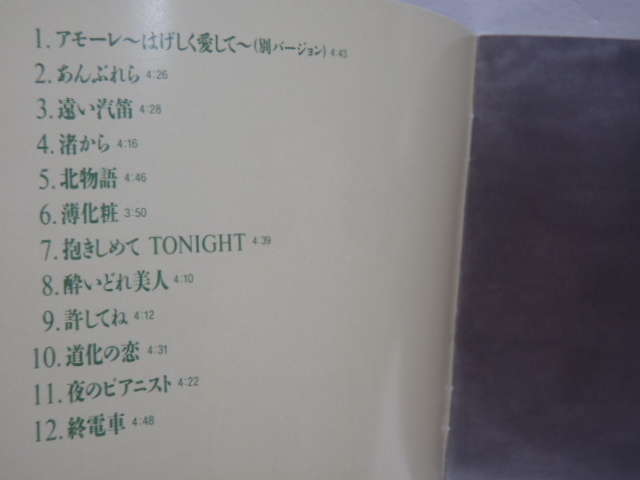 1. アモーレ～はげしく愛して～(別バージョン) 4:43
2. あんぶれら 4:26
3. 遠い汽笛 4:28
4. 渚から 4:16
5. 北物語 4:46
6. 薄化粧 3:50
7. 抱きしめて TONIGHT 4:39
8. 酔いどれ美人 4:10
9. 許してね 4:12
10. 道化の恋 4:31
11. 夜のピアニスト 4:22
12. 終電車 4:48